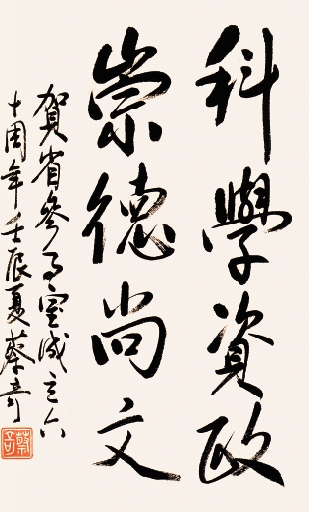 科學資政
崇德尚文
賀省參事室成立六
十周年壬辰夏蔡奇
蔡奇